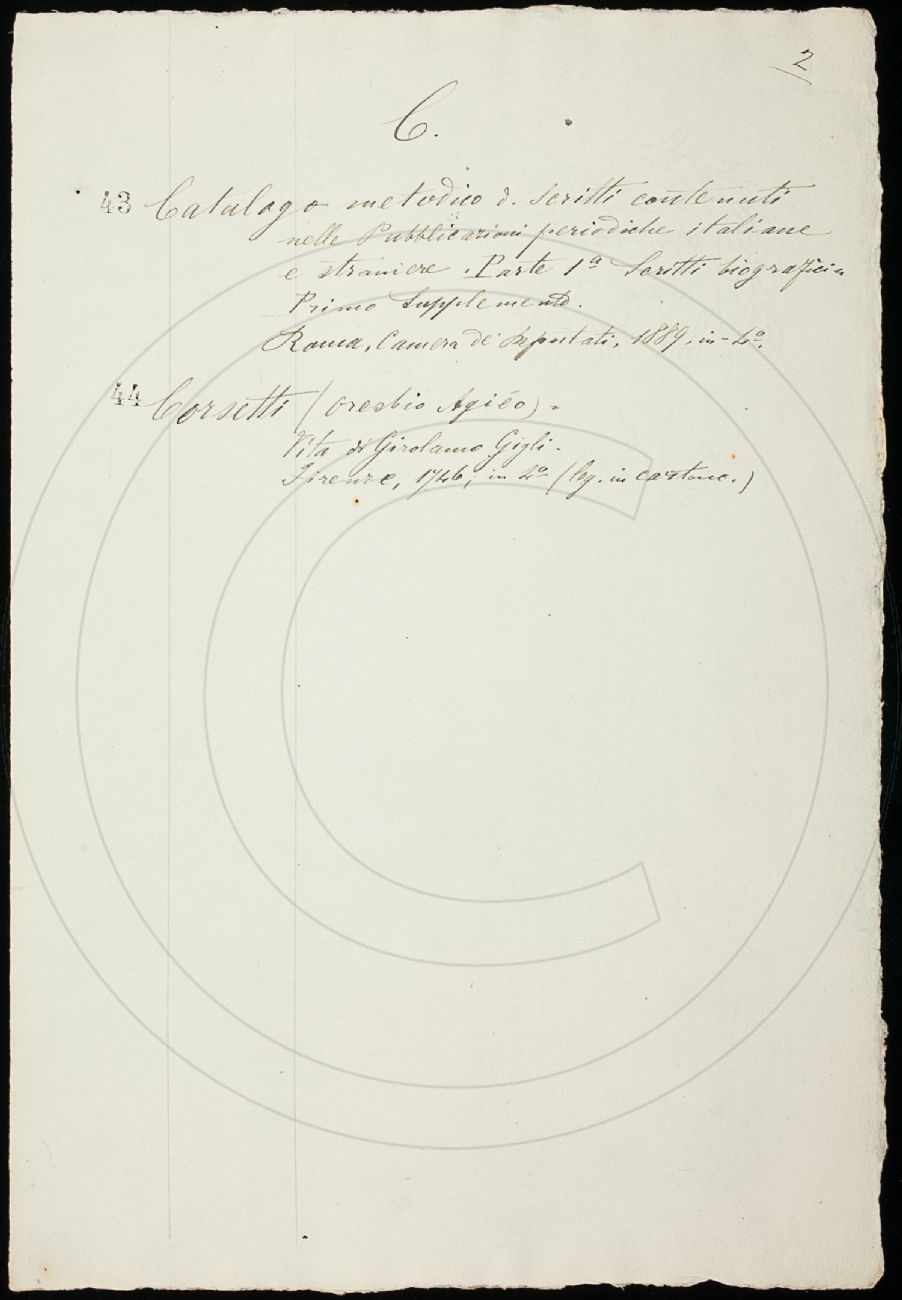 2
C.
43 Catalogo metodico d. scritti contenuti
nelle Pubblicazioni periodiche italiane
e straniere. Parte 1ª Scritti biografici
Primo Supplemento.
Roma, Camera dei Deputati, 1889, in-4º.
44 Corsetti (Oresbio Agiéo).
Vita di Girolamo Gigli.
Firenze, 1746; in 4º (leg. in cartone.)